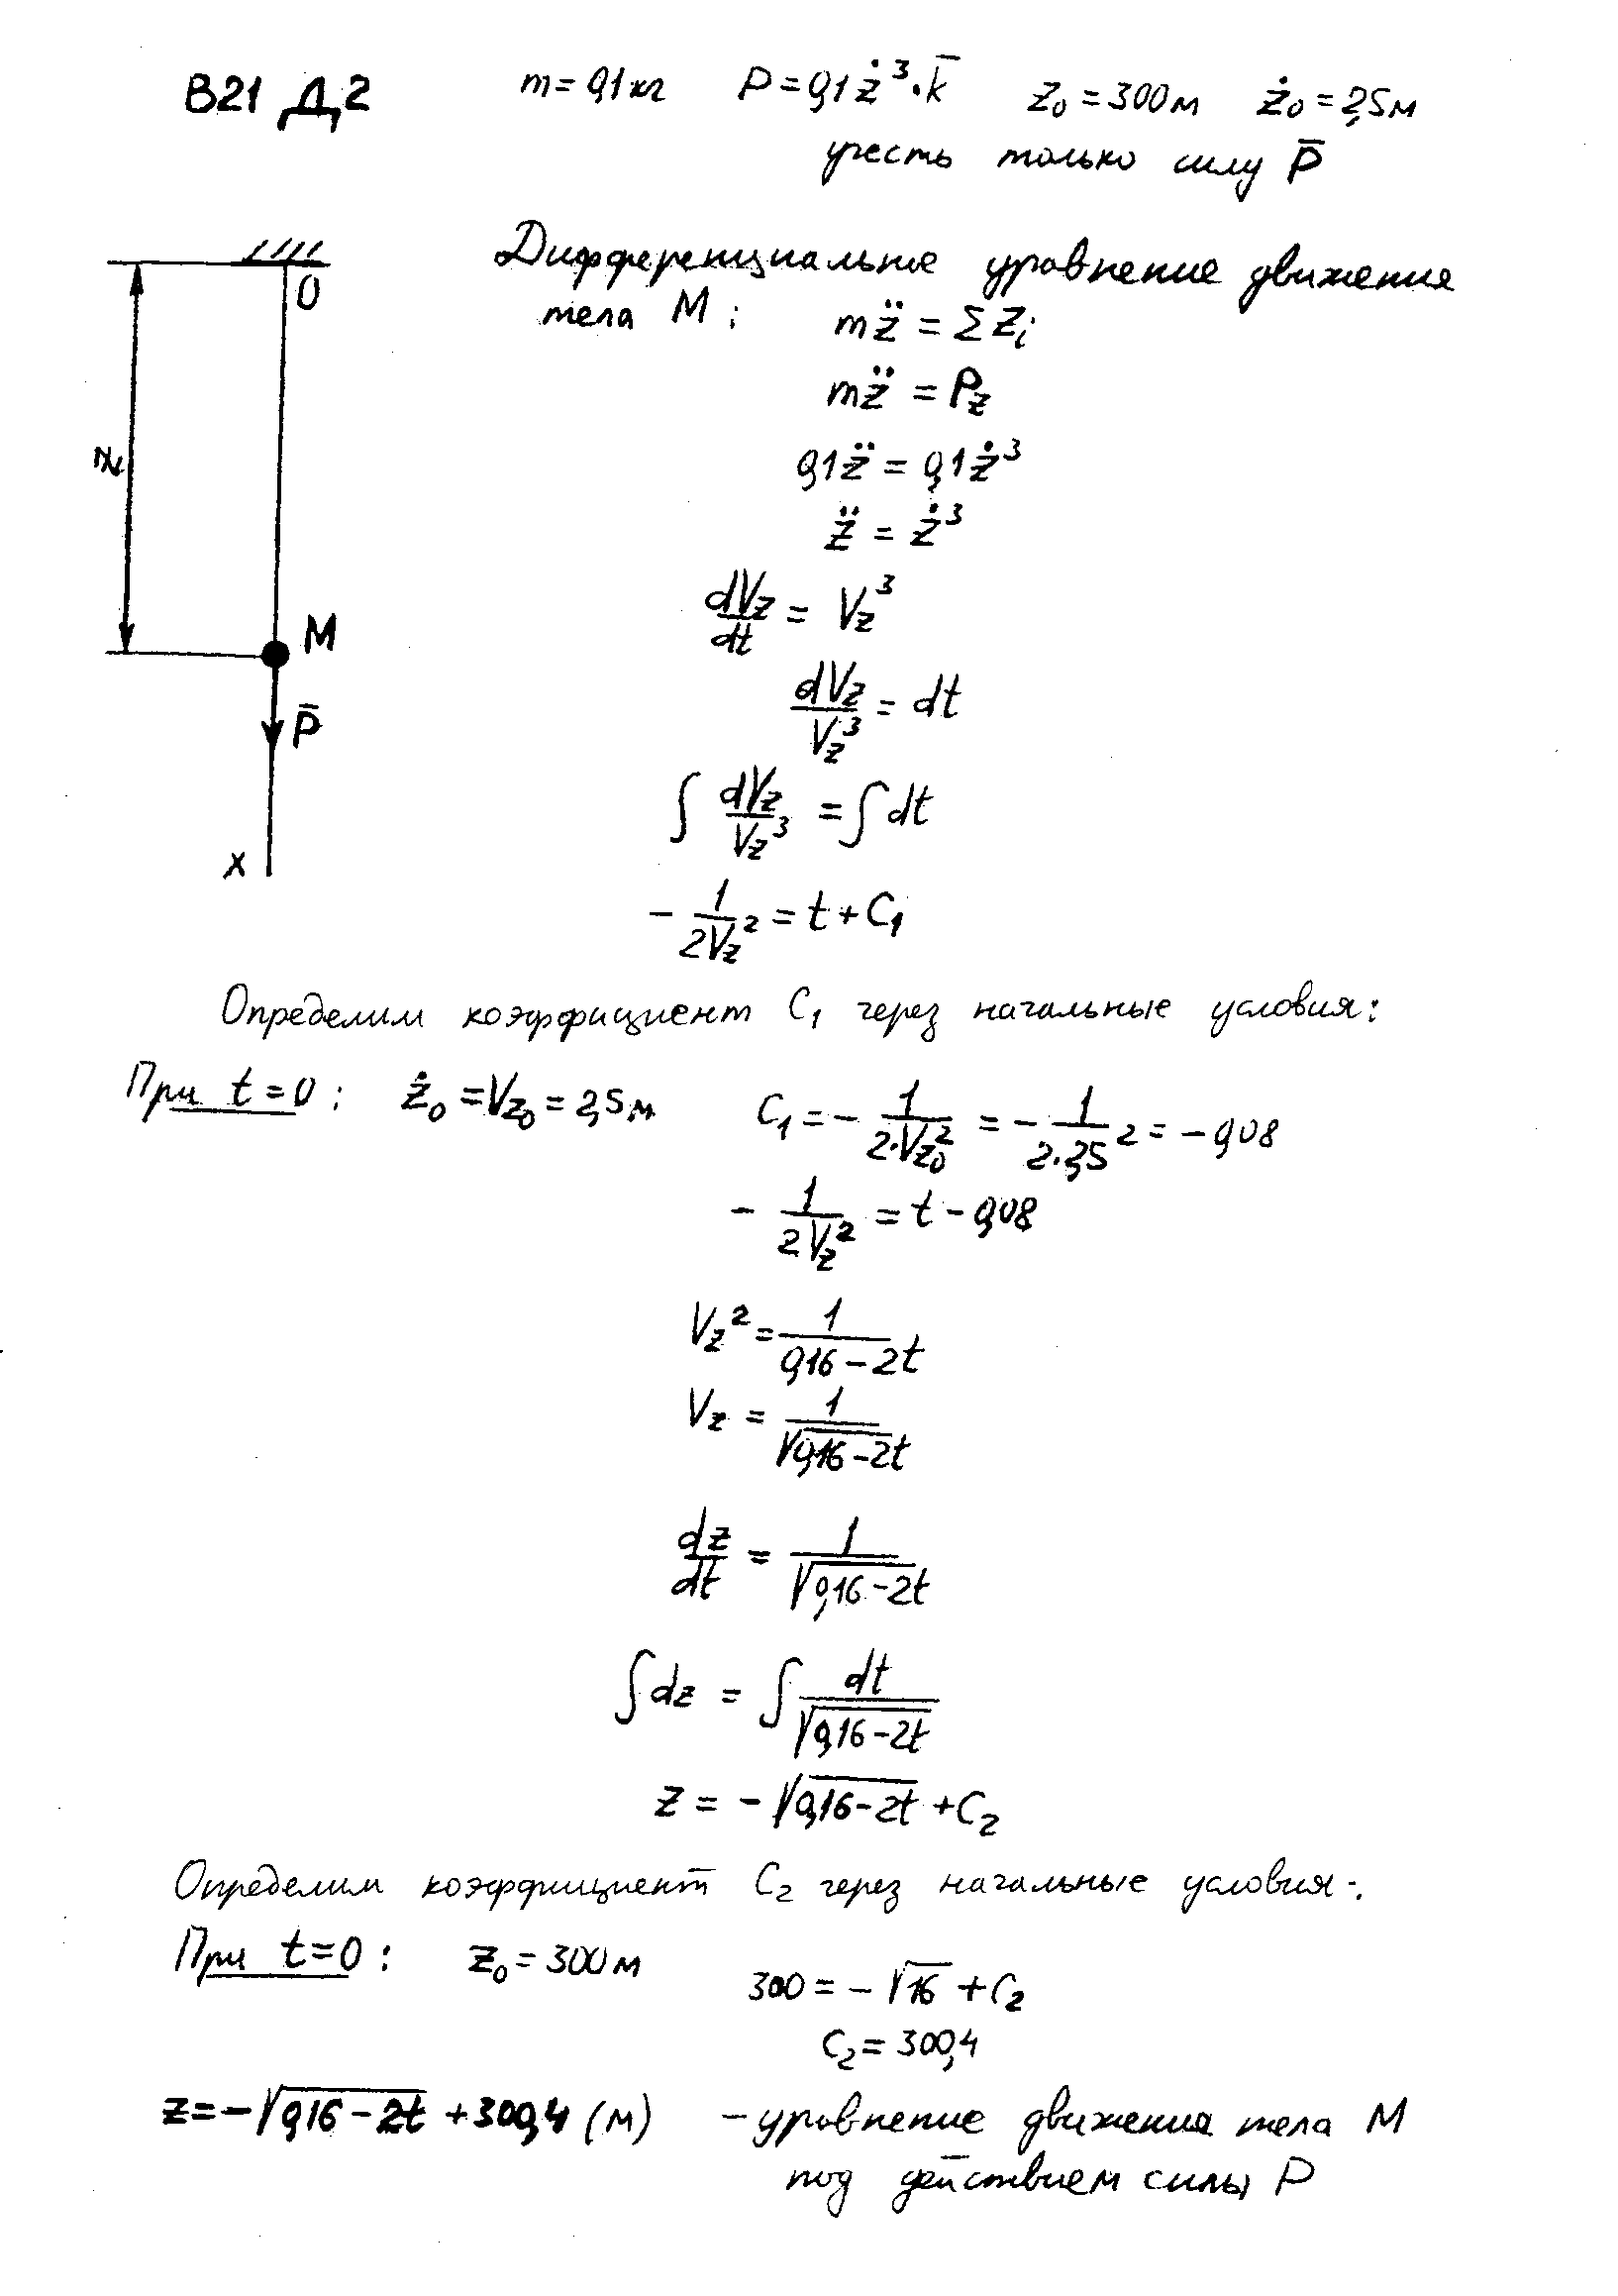 В21 Д2 m = 0,1 кг P = 0,1 ż³·k̄ z₀ = 300 м ż₀ = 2,5 м
учесть только силу P̄
Дифференциальное уравнение движения
тела М: mz̈ = ΣZᵢ
mz̈ = P_z
0,1z̈ = 0,1ż³
z̈ = ż³
dV_z/dt = V_z³
dV_z/V_z³ = dt
∫ dV_z/V_z³ = ∫ dt
- 1/2V_z² = t + C₁
O
z
M
P̄
x
Определим коэффициент C₁ через начальные условия:
При t = 0: ż₀ = V_z₀ = 2,5 м C₁ = - 1/2·V_z₀² = - 1/2·2,5² = - 0,08
- 1/2V_z² = t - 0,08
V_z² = 1/0,16 - 2t
V_z = 1/√0,16 - 2t
dz/dt = 1/√0,16 - 2t
∫ dz = ∫ dt/√0,16 - 2t
z = - √0,16 - 2t + C₂
Определим коэффициент C₂ через начальные условия:
При t = 0: z₀ = 300 м 300 = - √16 + C₂
C₂ = 300,4
z = - √0,16 - 2t + 300,4 (м) - уравнение движения тела М
под действием силы P